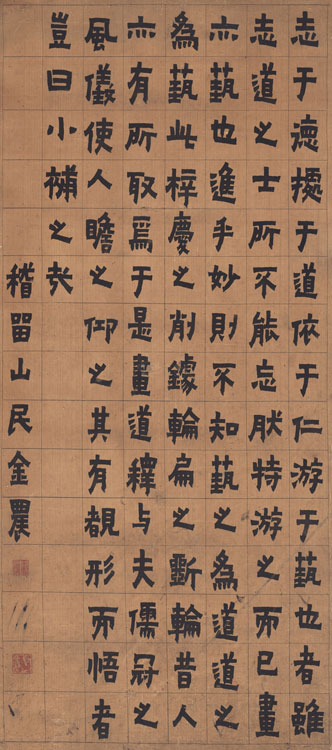 志于德據于道依于仁游于藝也者雖
志道之士所不能忘肰特游之而已畫
亦藝也進乎妙則不知藝之為道道之
為藝此梓慶之削鐻輪扁之斲輪昔人
亦有所取焉于是畫道釋与夫儒冠之
風儀使人瞻之仰之其有覩形而悟者
豈曰小補之哉
稽留山民金農